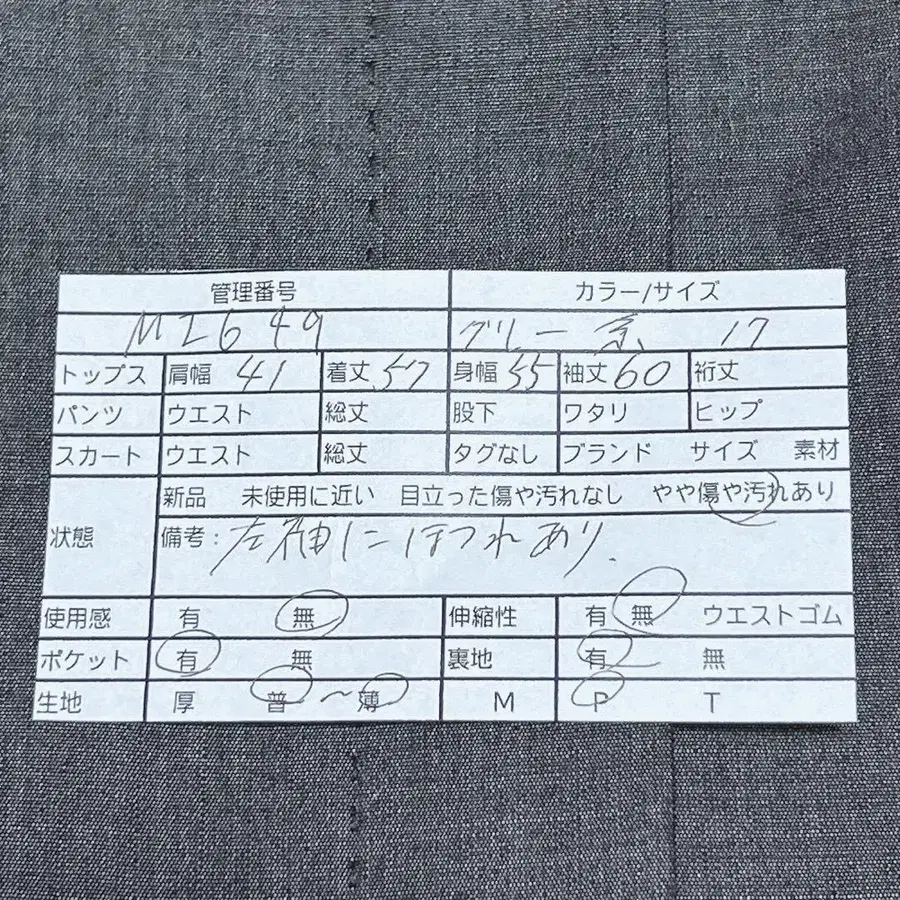 管理番号 カラー/サイズ
MI649 グレー系 17
トップス 肩幅 41 着丈 57 身幅 55 袖丈 60 裄丈
パンツ ウエスト 総丈 股下 ワタリ ヒップ
スカート ウエスト 総丈 タグなし ブランド サイズ 素材
状態 新品 未使用に近い 目立った傷や汚れなし やや傷や汚れあり
備考: 左袖にほつれあり.
使用感 有 無 伸縮性 有 無 ウエストゴム
ポケット 有 無 裏地 有 無
生地 厚 普 ~ 薄 M P T